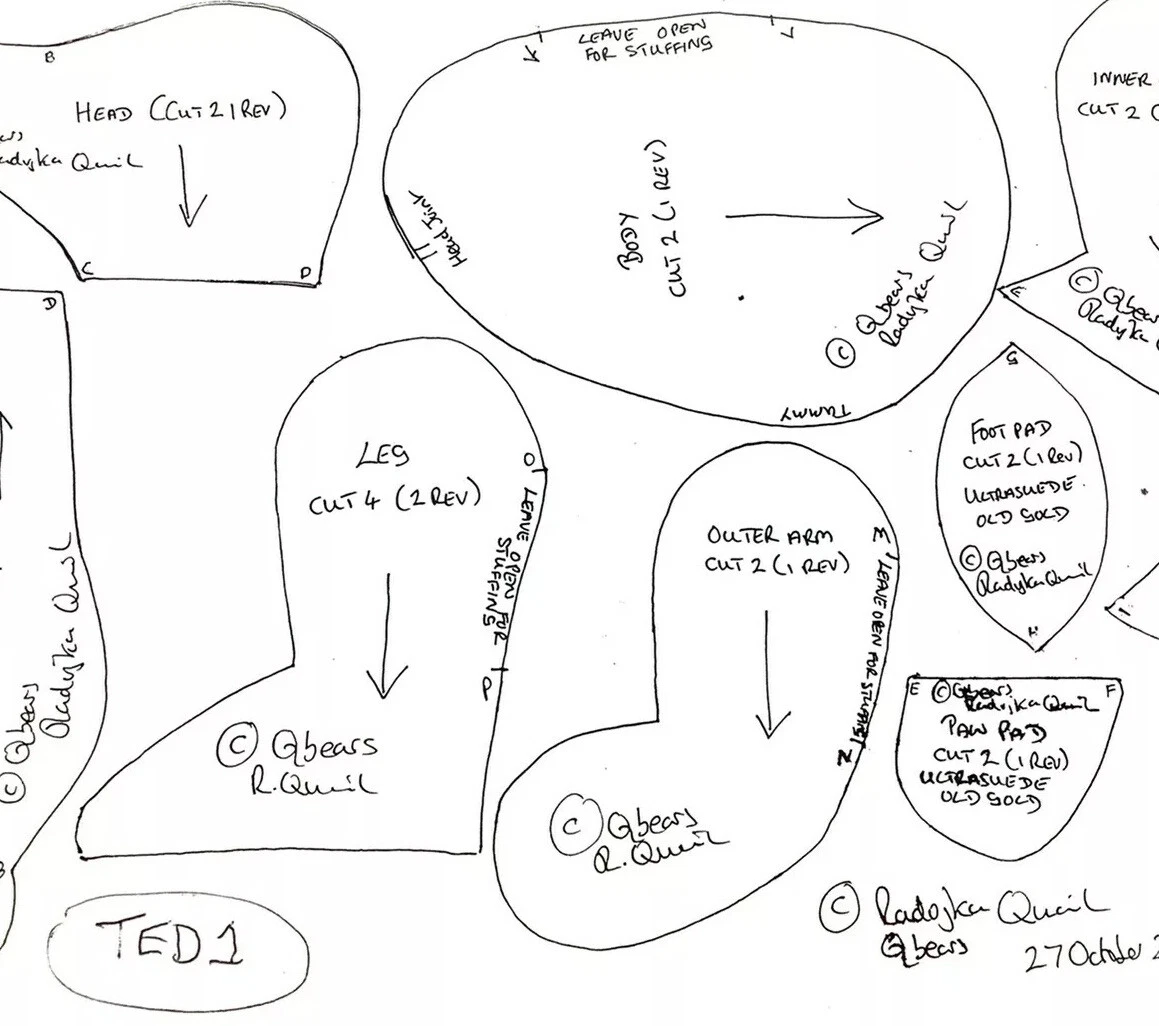 B
HEAD (CUT 2 1 REV)
Quail
C
D
LEAVE OPEN
FOR STUFFING
K
L
Head Joint
BODY
CUT 2 (1 REV)
© Qbears
Radojka Quail
TUMMY
INNER
CUT 2 (
E
© Qbea
Radojka
D
© Qbears
Radojka Quail
LEG
CUT 4 (2 REV)
O
LEAVE OPEN FOR
STUFFING
P
© Qbears
R. Quail
OUTER ARM
CUT 2 (1 REV)
M
LEAVE OPEN FOR
N
© Qbears
R. Quail
G
FOOT PAD
CUT 2 (1 Rev)
ULTRASUEDE
OLD GOLD
© Qbears
Radojka Quail
H
I
E
F
© Qbears
Radojka Quail
PAW PAD
CUT 2 (1 REV)
ULTRASUEDE
OLD GOLD
TED 1
© Radojka Quail
Qbears
27 October 2